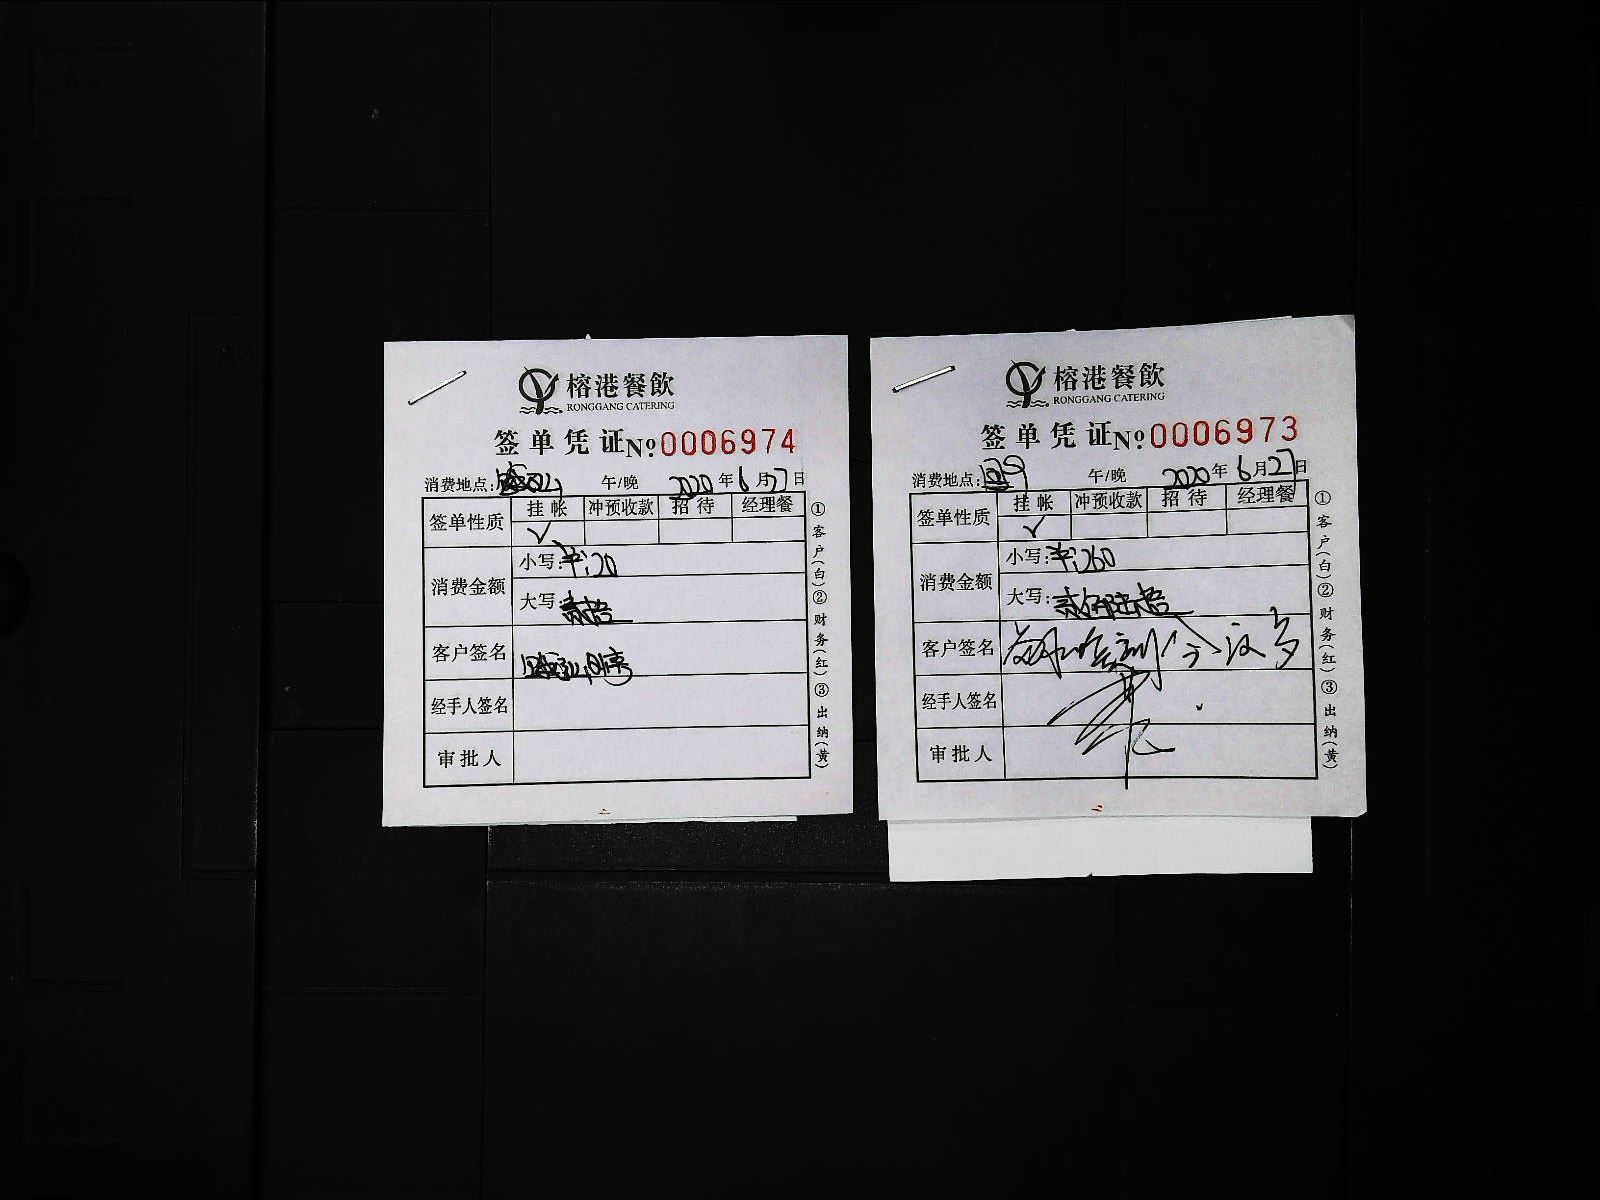 榕港餐飲
RONGGANG CATERING
签单凭证№0006974
消费地点: 午/晚 2020年6月27日
签单性质 挂帐 冲预收款 招待 经理餐
✓
消费金额 小写:¥:20
大写:贰拾
客户签名
经手人签名
审批人
①客户(白)②财务(红)③出纳(黄)
榕港餐飲
RONGGANG CATERING
签单凭证№0006973
消费地点: 午/晚 2020年6月27日
签单性质 挂帐 冲预收款 招待 经理餐
✓
消费金额 小写:¥:260
大写:贰佰陆拾
客户签名
经手人签名
审批人
①客户(白)②财务(红)③出纳(黄)